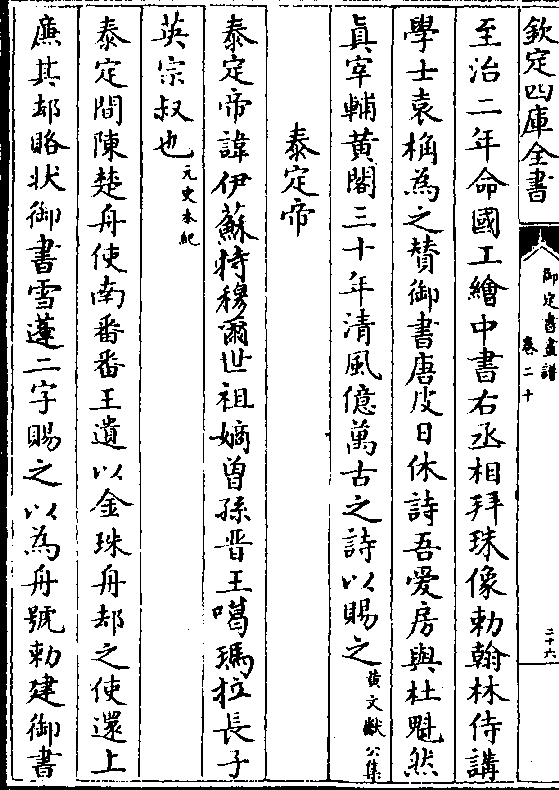 欽定四庫全書
御定書畫譜
卷二十
三十六
至治二年命國工繪中書右丞相拜珠像勅翰林侍講
學士袁桷為之贊御書唐皮日休詩吾愛房與杜魁然
眞宰輔黃閣三十年清風億萬古之詩以賜之黃文獻公集
泰定帝
泰定帝諱伊蘇特穆爾世祖嫡曾孫晋王噶瑪拉長子
英宗叔也元史本紀
泰定間陳楚舟使南番番王遺以金珠舟却之使還上
廉其却賂状御書雪蓬二字賜之以為舟號勅建御書